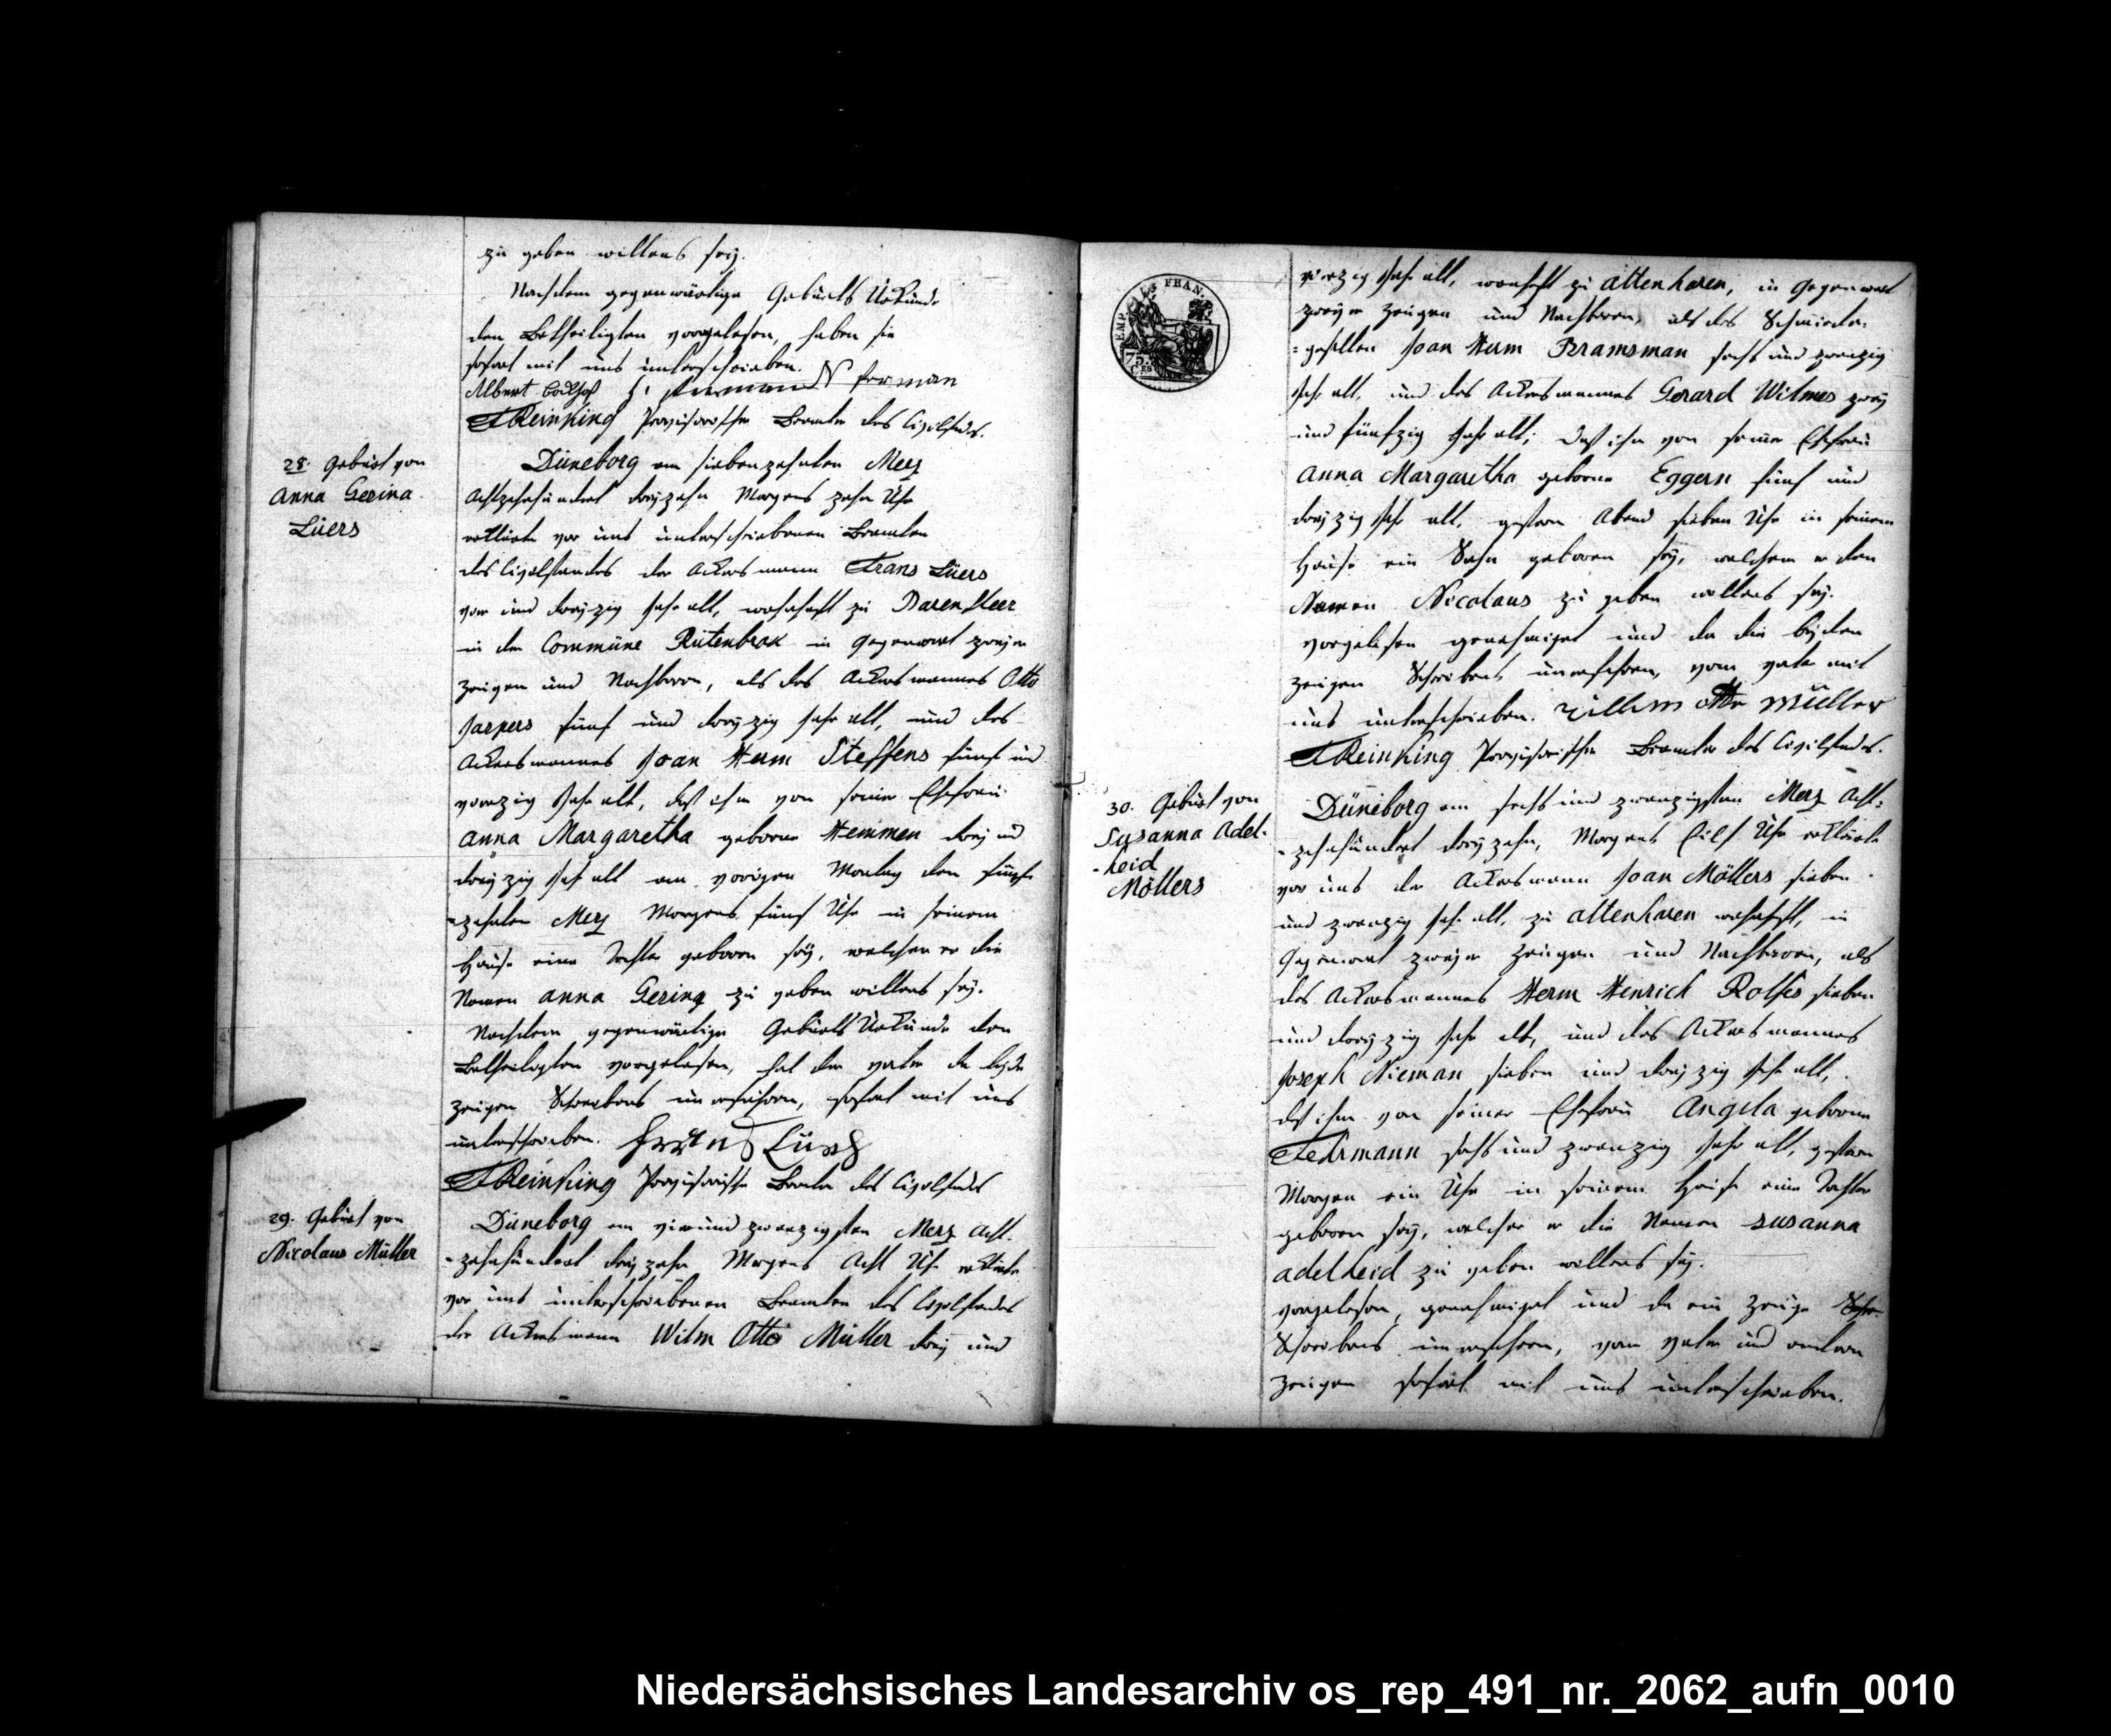 zu geben willens sey.
Nachdem gegenwärtige Geburts Urkunde
den Betheiligten vorgelesen, haben sie
sofort mit uns unterschrieben.
Albert
Reinking Provisorischer Beamter des Civilstandes.
28. Geburt von
Anna Gesina
Lüers
Düneborg am siebenzehnten Merz
Achtzehnhundert dreyzehn Morgens zehn Uhr
erklärte vor uns unterschriebenen Beamten
des Civilstandes der Ackersmann Frans Lüers
vier und dreyzig Jahr alt, wohnhaft zu Barenfleer
in der Commüne Rütenbrok in Gegenwart zweyer
Zeugen und Nachbaren, als des Ackersmannes Otto
Jaspers fünf und dreyzig Jahr alt, und des
Ackersmannes Joan Herm Steffens fünf und
vierzig Jahr alt, daß ihm von seiner Ehefrau
Anna Margaretha geborne Hemmen drey und
dreyzig Jahr alt am vorigen Montag den fünf-
-zehnten Merz Morgens fünf Uhr in seinem
Hause eine Tochter geboren sey, welcher er die
Namen Anna Gesina zu geben willens sey.
Nachdem gegenwärtige Geburts Urkunde den
Betheiligten vorgelesen, hat der Vater da beyde
Zeugen Schreibens unerfahren, sofort mit uns
unterschrieben. Frans Lüers
Reinking Provisorischer Beamter des Civilstandes
29. Geburt von
Nicolaus Müller
Düneborg am vierundzwanzigsten Merz Acht-
-zehnhundert dreyzehn Morgens Acht Uhr erklärte
vor uns unterschriebenen Beamten des Civilstandes
der Ackersmann Wilm Otto Müller drey und
EMP. FRAN.
75.
CES
vierzig Jahr alt, wonhaft zu Altenharen, in Gegenwart
zweyer Zeugen und Nachbaren, als des Schmiede-
=gesellen Joan Herm Bramsman sechs und zwanzig
Jahr alt, und des Ackersmannes Gerard Wilmes zwey
und fünfzig Jahr alt; daß ihm von seiner Ehefrau
Anna Margaretha geborne Eggern fünf und
dreyzig Jahr alt, gestern Abend sieben Uhr in seinem
Hause ein Sohn geboren sey, welchem er den
Namen Nicolaus zu geben willens sey.
vorgelesen genehmiget und da die beyden
Zeugen Schreibens unerfahren, vom Vater mit
uns unterschrieben. Willem otto Müller
Reinking Provisorischer Beamter des Civilstandes.
30. Geburt von
Susanna Adel-
-heid
Möllers
Düneborg am sechs und zwanzigsten Merz Acht-
-zehnhundert dreyzehn, Morgens Eilf Uhr erklärte
vor uns der Ackersmann Joan Möllers sieben
und zwanzig Jahr alt, zu Altenharen wohnhaft, in
Gegenwart zweyer Zeugen und Nachbaren, als
des Ackersmannes Herm Henrich Rolfes sieben
und dreyzig Jahr alt, und des Ackersmannes
Joseph Nieman sieben und dreyzig Jahr alt,
daß ihm von seiner Ehefrau Angela geborne
Fehrmann sechs und zwanzig Jahr alt, gestern
Morgen ein Uhr in seinem Hause eine Tochter
geboren sey, welcher er die Namen Susanna
Adelheid zu geben willens sey.
vorgelesen, genehmiget und da ein Zeuge
Schreibens unerfahren, vom Vater und andern
Zeugen sofort mit uns unterschrieben.
Niedersächsisches Landesarchiv os_rep_491_nr._2062_aufn_0010